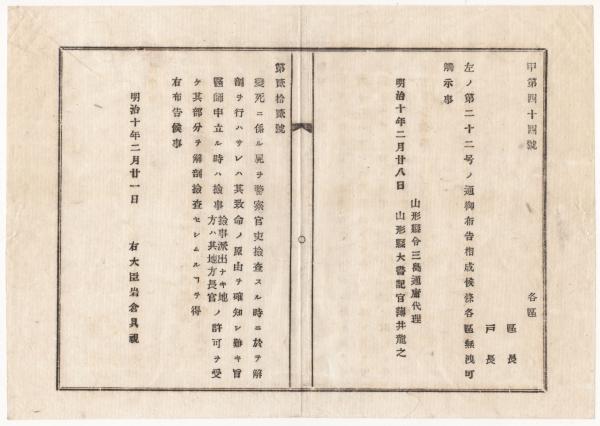 甲第四十四號
各區
區長
戸長
左ノ第二十二号ノ通御布告相成候條各區無洩可
觸示事
明治十年二月廿八日
山形縣令三島通庸代理
山形縣大書記官薄井龍之
第貳拾貳號
變死ニ係ル屍ヲ警察官吏撿査スル時ニ於テ解
剖ヲ行ハサレハ其致命ノ原由ヲ確知シ難キ旨
醫師申立ル時ハ撿事撿事派出ナキ地方ハ其地方長官ノ許可ヲ受
ケ其部分ヲ解剖撿査セシムルヿヲ得
右布告候事
明治十年二月廿一日
右大臣岩倉具視